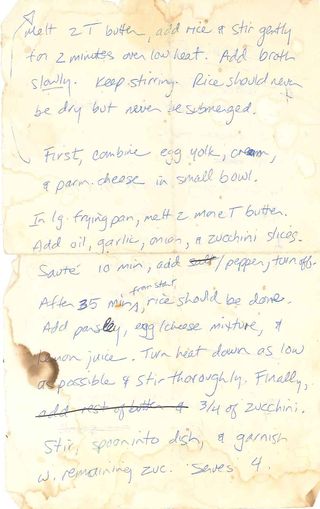 Melt 2 T butter, add rice & stir gently
for 2 minutes over low heat. Add broth
slowly. Keep stirring. Rice should never
be dry but never be submerged.
First, combine egg yolk, cream,
& parm. cheese in small bowl.
In lg. frying pan, melt 2 more T butter.
Add oil, garlic, onion, & zucchini slices.
Sauté 10 min, add salt/pepper, turn off.
from start
After 35 min, rice should be done.
Add parsley, egg/cheese mixture, &
lemon juice. Turn heat down as low
as possible & stir thoroughly. Finally,
add rest of butter & 3/4 of zucchini.
Stir, spoon into dish, & garnish
w. remaining zuc. Serves 4.